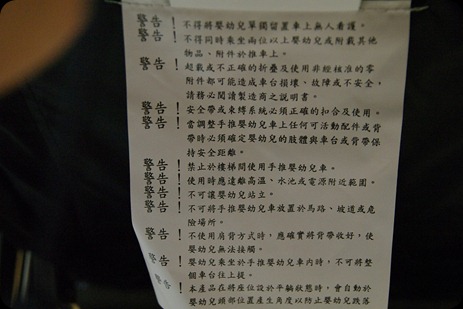 警告!不得將嬰幼兒單獨留置車上無人看護。
警告!不得同時乘坐兩位以上嬰幼兒或附載其他
物品、附件於推車上。
警告!超載或不正確的折疊及使用非經核准的零
附件都可能造成車台損壞、故障或不安全,
請務必閱讀製造商之說明書。
警告!安全帶或束縛系統必須正確的扣合及使用。
警告!當調整手推嬰幼兒車上任何可活動配件或背
帶時必須確定嬰幼兒的肢體與車台或背帶保
持安全距離。
警告!禁止於樓梯間使用手推嬰幼兒車。
警告!使用時應遠離高溫、水池或電源附近範圍。
警告!不可讓嬰幼兒站立。
警告!不可將手推嬰幼兒車放置於馬路、坡道或危
險場所。
警告!不使用肩背方式時,應確實將背帶收好,使
嬰幼兒無法接觸。
警告!嬰幼兒乘坐於手推嬰幼兒車內時,不可將整
個車台往上提。
警告!本產品在將座位設於平躺狀態時,會自動於
嬰幼兒頭部位置產生角度以防止嬰幼兒跌落